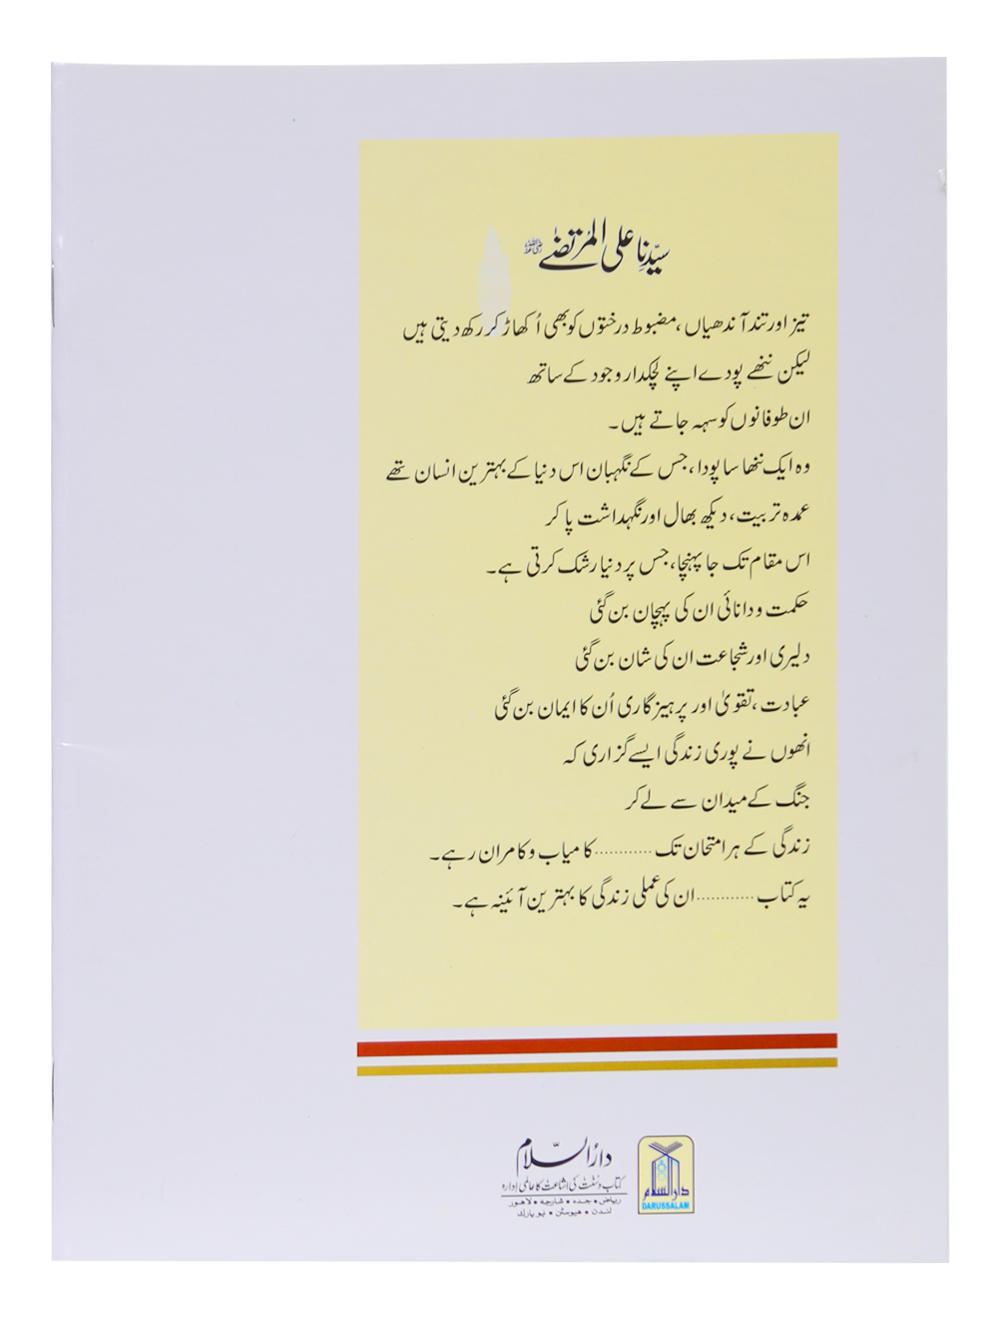 سیّدنا علی المرتضےٰ رضی اللہ عنہ
تیز اور تند آندھیاں، مضبوط درختوں کو بھی اُکھاڑ کر رکھ دیتی ہیں
لیکن ننھے پودے اپنے لچکدار وجود کے ساتھ
ان طوفانوں کو سہہ جاتے ہیں۔
وہ ایک ننھا سا پودا، جس کے نگہبان اس دنیا کے بہترین انسان تھے
عمدہ تربیت، دیکھ بھال اور نگہداشت پا کر
اس مقام تک جا پہنچا، جس پر دنیا رشک کرتی ہے۔
حکمت و دانائی ان کی پہچان بن گئی
دلیری اور شجاعت ان کی شان بن گئی
عبادت، تقویٰ اور پرہیزگاری اُن کا ایمان بن گئی
انھوں نے پوری زندگی ایسے گزاری کہ
جنگ کے میدان سے لے کر
زندگی کے ہر امتحان تک ............ کامیاب و کامران رہے۔
یہ کتاب ............ ان کی عملی زندگی کا بہترین آئینہ ہے۔
دارالسّلام
کتاب و سنت کی اشاعت کا عالمی ادارہ
ریاض • جدہ • شارجہ • لاہور
لندن • ہیوسٹن • نیویارک
دارالسلام
DARUSSALAM